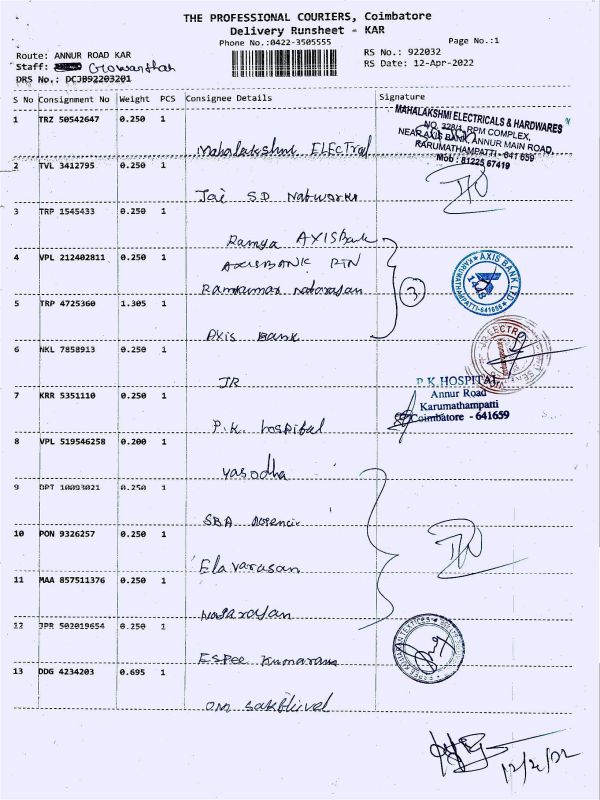 THE PROFESSIONAL COURIERS, Coimbatore
Delivery Runsheet - KAR
Phone No.:0422-3505555
Page No.:1
Route: ANNUR ROAD KAR
RS No.: 922032
Staff:
RS Date: 12-Apr-2022
DRS No.: DCJB92203201
S No Consignment No Weight PCS Consignee Details Signature
1 TRZ 50542647 0.250 1
MAHALAKSHMI ELECTRICALS & HARDWARES
NO. 328/1, RPM COMPLEX,
NEAR AXIS BANK, ANNUR MAIN ROAD,
KARUMATHAMPATTI - 641 659
Mob : 81225 67419
Mahalakshmi ELECTrical
2 TVL 3412795 0.250 1
Jai S.D Networks
3 TRP 1545433 0.250 1
Ramya AXISBank
4 VPL 212402811 0.250 1
AXISBANK
Ramkumar Natarasan
3
AXIS BANK LTD
KARUMATHAMPATTI-641659
5 TRP 4725360 1.305 1
Axis Bank
6 NKL 7858913 0.250 1
JR
P.K.HOSPITAL
Annur Road
Karumathampatti
Coimbatore - 641659
7 KRR 5351110 0.250 1
P.K. hospital
8 VPL 519546258 0.200 1
Yasodha
9 DPT 10093021 0.250 1
SBA
10 PON 9326257 0.250 1
Elavarasan
11 MAA 857511376 0.250 1
Nagarasan
12 JPR 502019654 0.250 1
ESPee Kumarans
13 DDG 4234203 0.695 1
OM Sakthivel
12/4/22